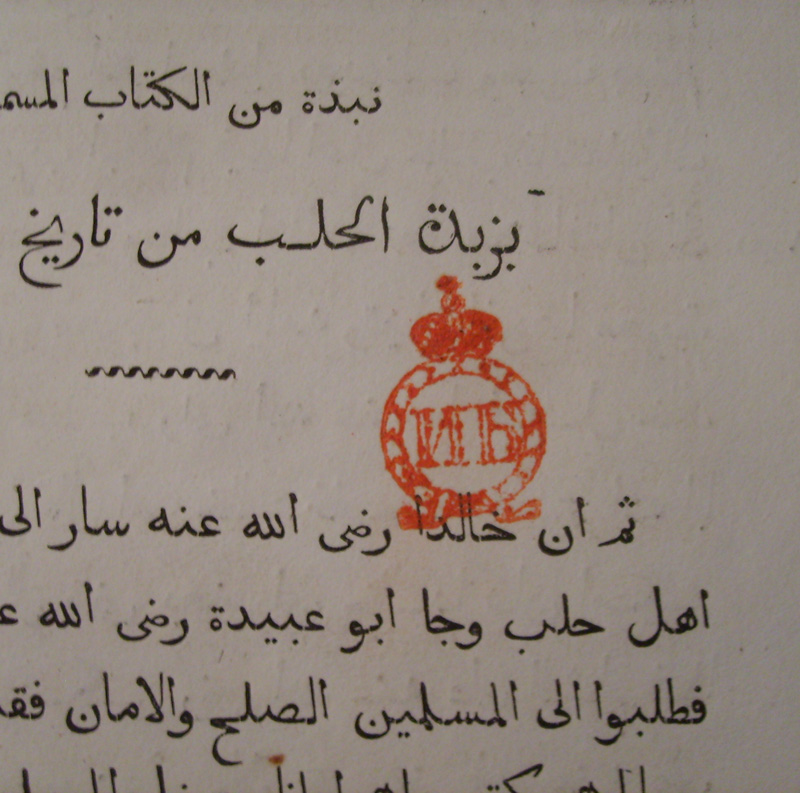 نبذة من الكتاب
بزبدة الحلب من تاريخ
ИБ
ثم ان خالدا رضى الله عنه سار الى
اهل حلب وجا ابو عبيدة رضى الله
فطلبوا الى المسلمين الصلح والامان